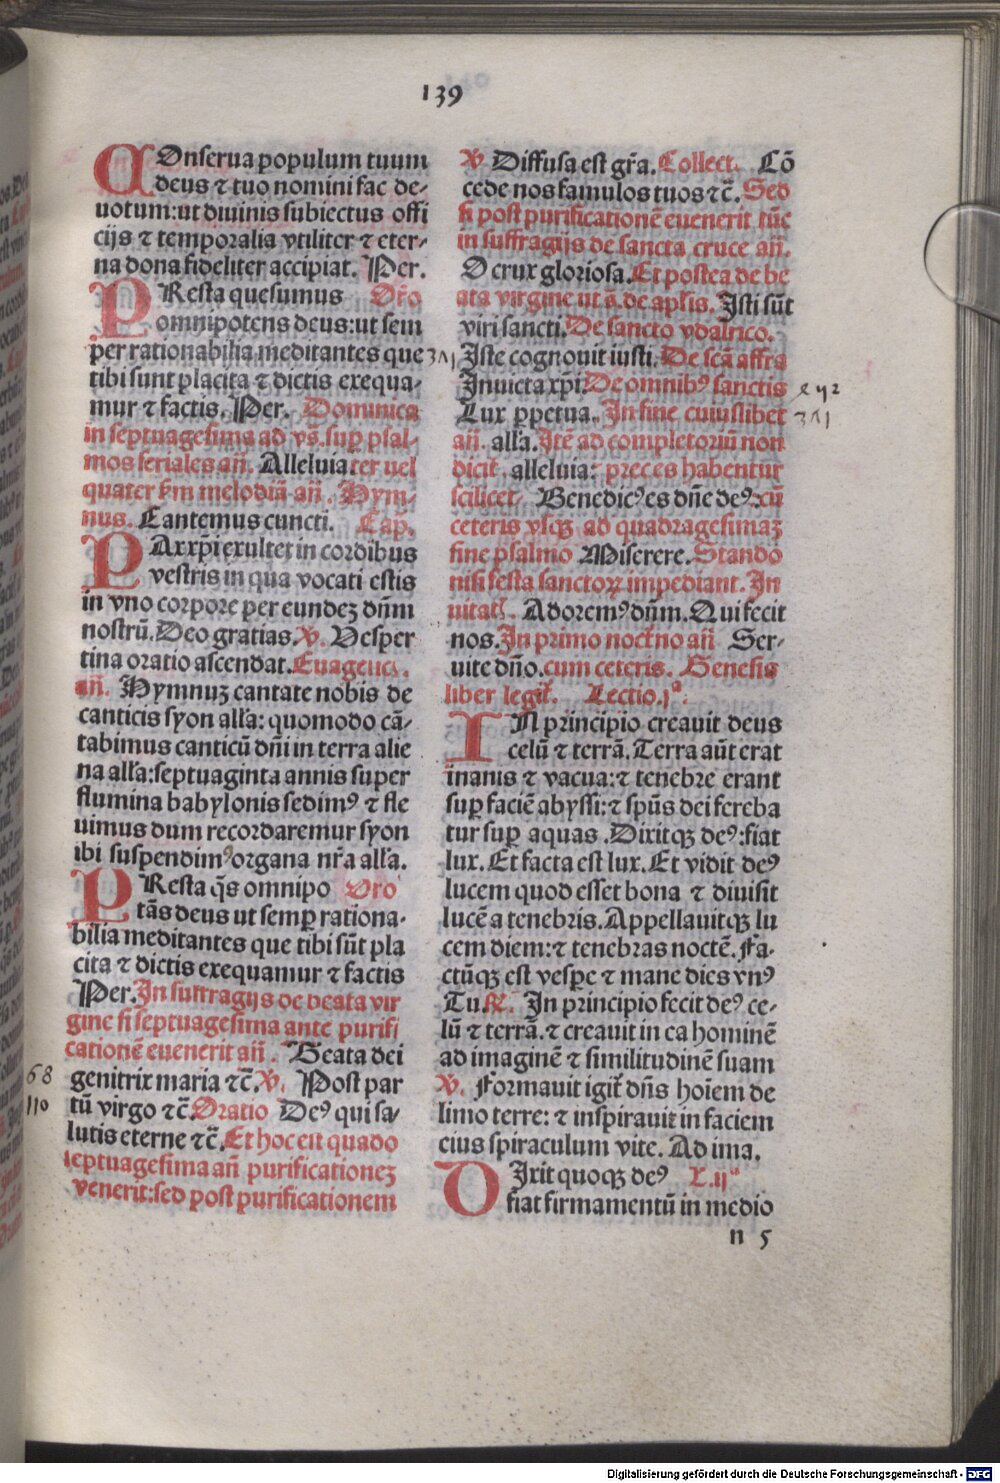 139
COnserua populum tuum
deus ⁊ tuo nomini fac de-
uotum:ut diuinis subiectus offi
cijs ⁊ temporalia vtiliter ⁊ eter-
na dona fideliter accipiat. Per.
PResta quesumus Oro
omnipotens deus:ut sem
per rationabilia meditantes que
tibi sunt placita ⁊ dictis exequa-
mur ⁊ factis. Per. Dominica
in septuagesima ad vs̄. sup̲ psal-
mos feriales an̄. Alleluia ter uel
quater ẜm melodiā an̄. Hym-
nus. Cantemus cuncti. Cap.
PAx xp̄i exultet in cordibus
vestris in qua vocati estis
in vno corpore per eundeꝫ dn̄m
nostrū. Deo gratias. ℣. Vesper
tina oratio ascendat. Euageuɛ.
an̄. Hymnuꝫ cantate nobis de
canticis syon all'a: quomodo cā-
tabimus canticū dn̄i in terra alie
na all'a:septuaginta annis super
flumina babylonis sedimꝰ ⁊ fle
uimus dum recordaremur syon
ibi suspendimꝰ organa nr̄a all'a.
PResta q̄s omnipo Oro
tās deus ut semp̲ rationa-
bilia meditantes que tibi sūt pla
cita ⁊ dictis exequamur ⁊ factis
Per. In suffragijs de beata vir
gine si septuagesima ante purifi
cationē euenerit an̄. Beata dei
genitrix maria ⁊c̄. ℣. Post par
tū virgo ⁊c̄. Oratio Deꝰ qui sa-
lutis eterne ⁊c̄. Et hoc est quādo
septuagesima an̄ purificationeꝫ
venerit:sed post purificationem
68
110
℣. Diffusa est gr̄a. Collect. Cō
cede nos famulos tuos ⁊c̄. Sed
si post purificationē euenerit tūc
in suffragijs de sancta cruce an̄.
O crux gloriosa. Et postea de be
ata virgine ut ā. de ap̄lis. Isti sūt
viri sancti. De sancto vdalrico.
341 Iste cognouit iusti. De scā affra
Inuicta xp̄i. De omnibꝰ sanctis
Lux p̲petua. In fine cuiuslibet
341
an̄. all'a. Itē ad completoriū non
dicit̄ alleluia: preces habentur
scilicet. Benedicꝰ es dn̄e deꝰ:cū
ceteris vsqꝫ ad quadragesimaꝫ
sine psalmo Miserere. Stando
nisi festa sanctoꝝ impediant. In
uitat̄. Adoremꝰ dn̄m. Qui fecit
nos. In primo noct̄no an̄ Ser-
uite dn̄o. cum ceteris. Genesis
liber legit̄. Lectio. jª
IN principio creauit deus
celū ⁊ terrā. Terra aūt erat
inanis ⁊ vacua:⁊ tenebre erant
sup̲ faciē abyssi:⁊ sp̄us dei fereba
tur sup̲ aquas. Dixitqꝫ deꝰ:fiat
lux. Et facta est lux. Et vidit deꝰ
lucem quod esset bona ⁊ diuisit
lucē a tenebris. Appellauitqꝫ lu
cem diem:⁊ tenebras noctē. Fa-
ctūqꝫ est vesp̲e ⁊ mane dies vnꝰ
Tu. ℟. In principio fecit deꝰ ce-
lū ⁊ terrā. ⁊ creauit in ea hominē
ad imaginē ⁊ similitudinē suam
℣. Formauit igit̄ dn̄s hoīem de
limo terre: ⁊ inspirauit in faciem
eius spiraculum vite. Ad ima.
DIxit quoqꝫ deꝰ L.ijª
fiat firmamentū in medio
n 5
Digitalisierung gefördert durch die Deutsche Forschungsgemeinschaft - DFG